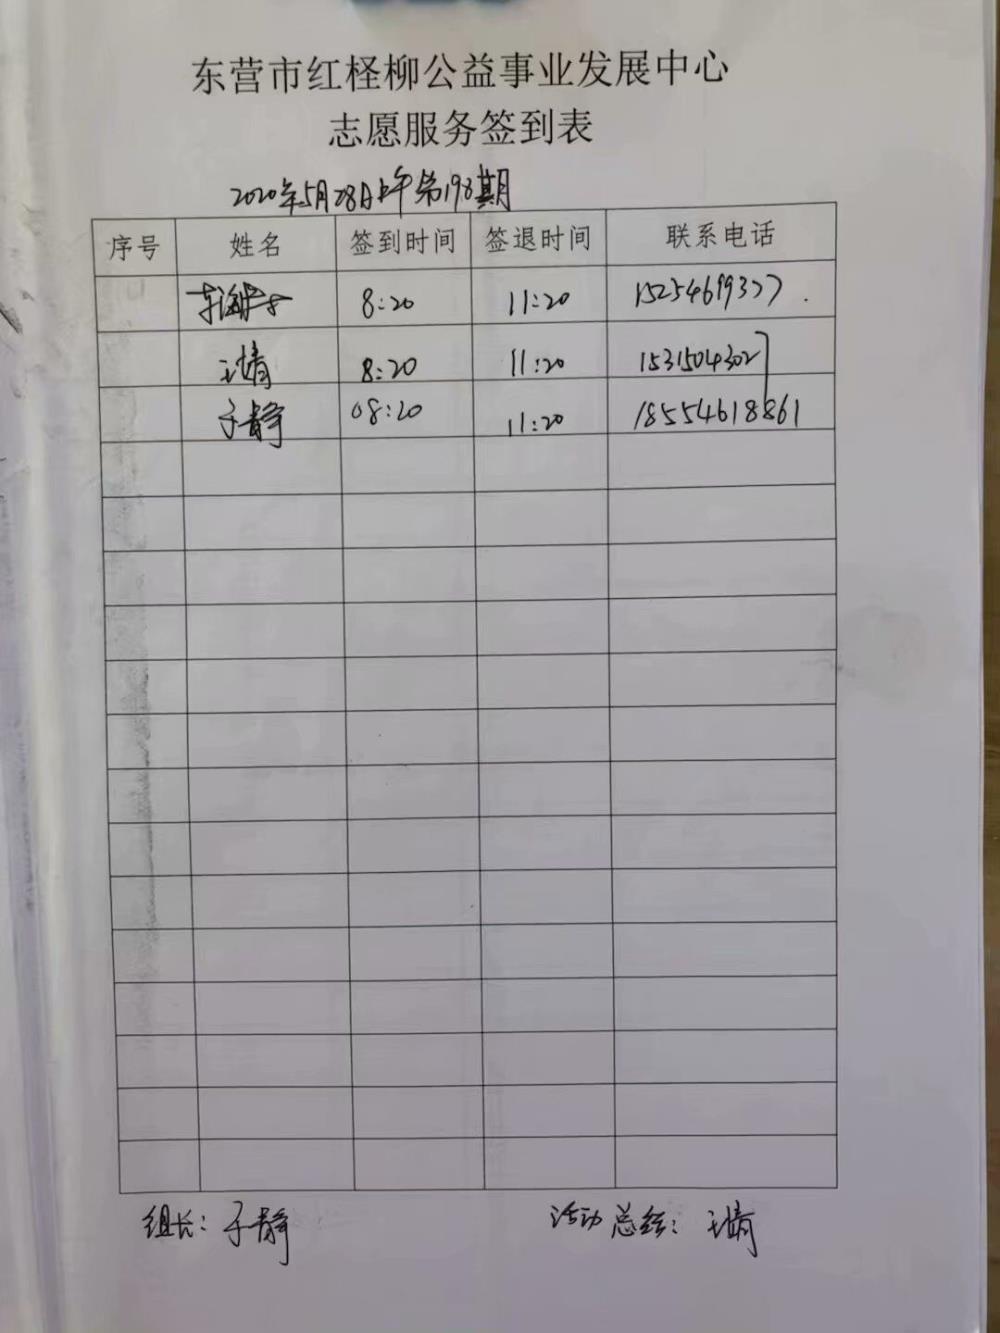 东营市红柽柳公益事业发展中心
志愿服务签到表
2020年5月28日上午第193期
序号 姓名 签到时间 签退时间 联系电话
8:20 11:20 15254619377
王倩 8:20 11:20 15315043027
于静 08:20 11:20 18554618861
组长：于静 活动总结：王倩